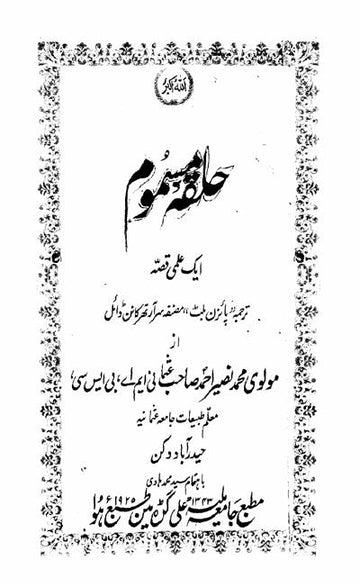 اللہ اکبر
حلقہ مسموم
ایک علمی قصہ
ترجمہ "پائزن بلٹ" مصنفہ سر آرتھر کانن ڈائل
از
مولوی محمد نصیر احمد صاحب عثمانی ایم اے، بی ایس سی،
معلم طبیعات جامعہ عثمانیہ
حیدرآباد دکن
باہتمام سید محمد ہادی
مطبع جامعہ ملیہ علی گڑھ میں طبع ہوا
۱۳۴۳ھ ۱۹۲۵ء